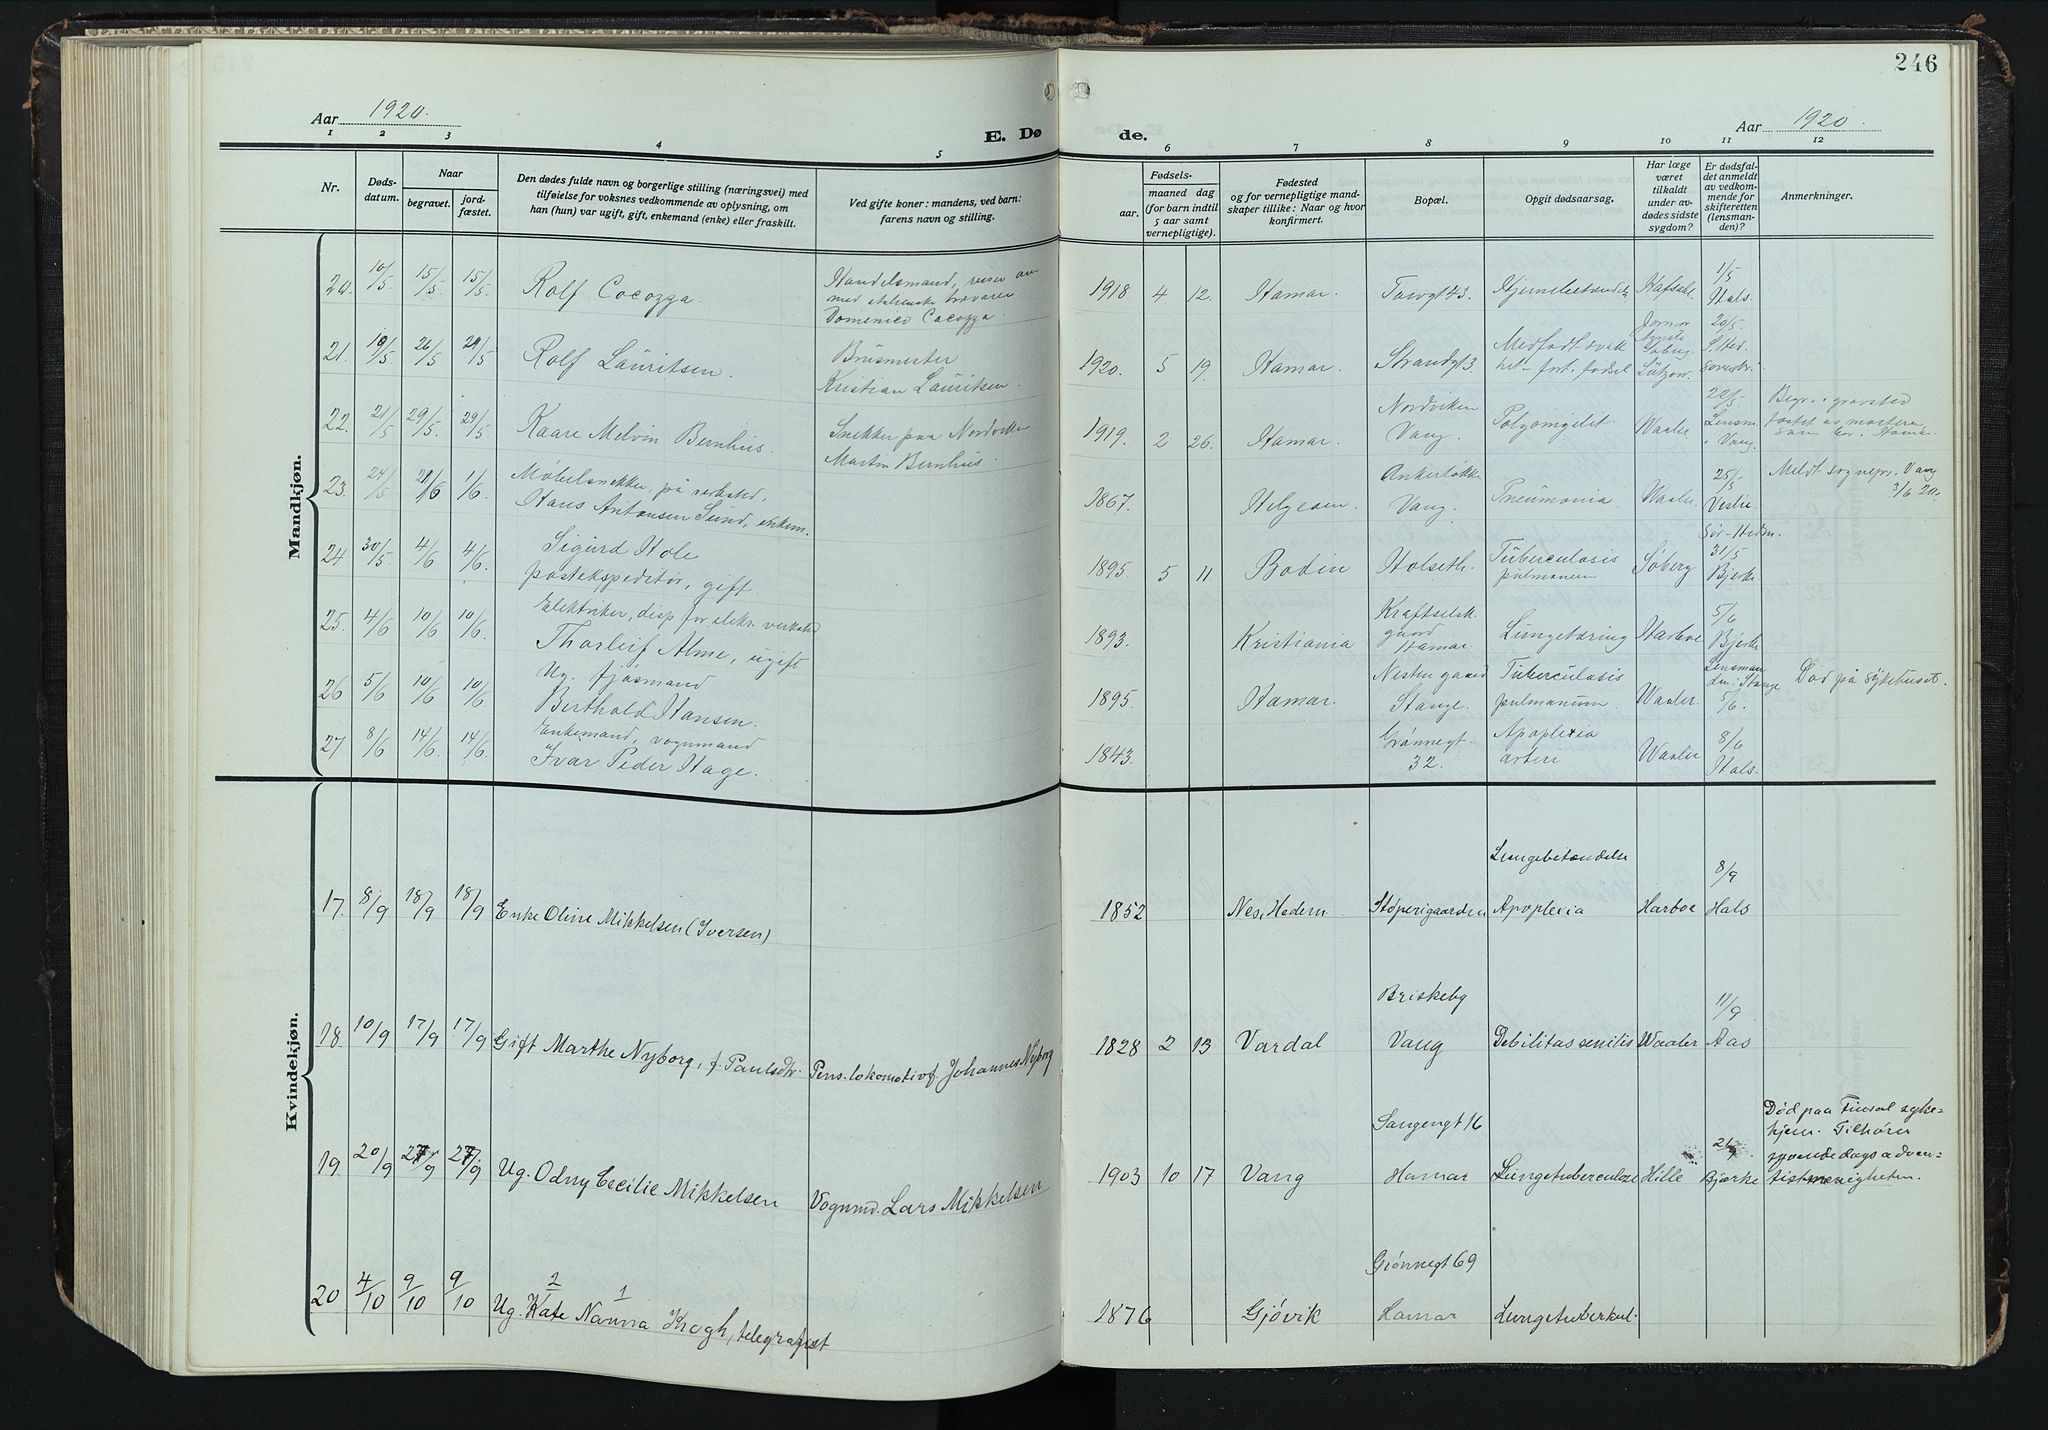 246
Aar 1920.
E. Dø de.
Aar 1920.
1 2 3 4 5 6 7 8 9 10 11 12
Nr.
Døds-
datum.
Naar
begravet.
jord-
fæstet.
Den dødes fulde navn og borgerlige stilling (næringsvei) med
tilføielse for voksnes vedkommende av oplysning, om
han (hun) var ugift, gift, enkemand (enke) eller fraskilt.
Ved gifte koner: mandens, ved barn:
farens navn og stilling.
Fødsels-
aar.
maaned dag
(for barn indtil
5 aar samt
vernepligtige).
Fødested
og for vernepligtige mand-
skaper tillike: Naar og hvor
konfirmert.
Bopæl.
Opgit dødsaarsag.
Har læge
været
tilkaldt
under av-
dødes sidste
sygdom?
Er dødsfal-
det anmeldt
av vedkom-
mende for
skifteretten
(lensman-
den)?
Anmerkninger.
Mandkjøn.
20. 10/5 15/5 15/5. Rolf Cocozza. Handelsmand, reiser om
med italienske trævarer
Domenico Cocozza. 1918 4 12. Hamar. Torvgt 43. Hjernebetændelse 1/5
Hals.
21. 19/5 26/5 Rolf Lauritsen. Brusmester
Kristian Lauritsen. 1920. 5 19. Hamar. Strandgt 3. Medfødt svak
het - før. fødsel Søberg
Lützow. 20/5.
S. Hed.
22. 21/5 29/5. 29/5 Kaare Melvin Bernhus. Snekker paa Nordviken
Martin Bernhus. 1919. 2 26. Hamar. Nordviken
Vang. Polyomyelit Waaler 22/5
Lensm.
i Vang. Begr. i gravsted
23. 24/5 1/6 Møbelsnekker på verksted,
Hans Antonsen Lund, enkem. 1867. Helgøen. Ankerløkka
Vang. Pneumonia Waaler 25/5 Meldt sognepr. Vang
3/6 20.
24 30/5 4/6 4/6. Sigurd Hole
postekspeditør, gift 1895. 5 11 Bodin Holseth. Tuberculosis
pulmonum Søberg Sør-Hedm.
31/5
Bjerke
25. 4/6 10/6 10/6. Elektriker, disp for elektr. verksted
Thorleif Alme, ugift 1893. Kristiania Kraftselsk.
gaard
Hamar. Lungetæring Harboe 5/6
Bjerke
26 5/6 10/6 10/6 Ug. fjøsmand
Berthold Hansen. 1895. Hamar. Nestengaard
Stange. Tuberculosis
pulmonum Waaler. Lensman
den i Stange
5/6. Død på sykehuset.
27 8/6 14/6 14/6 Enkemand, vognmand
Ivar Peder Hage. 1843. Grønnegt.
32. Apoplexia
arteri Waaler 8/6
Hals.
Kvindekjøn.
17. 8/9 18/9 18/9 Enke Oline Mikkelsen (Iversen) 1852 Nes, Hedem. Støperigaarden Lungebetændelse
Apoplexia Harboe 8/9
Hals
18. 10/9 17/9 17/9 Gift Marthe Nyborg, f. Paulsdtr. Pens. lokomotivf. Johannes Nyborg 1828 2 13 Vardal Briskeby
Vang Debilitas senilis Waaler 11/9
Aas
19. 20/9 27/9 27/9 Ug. Odny Cecilie Mikkelsen Vognmd. Lars Mikkelsen 1903 10 17 Vang Sangengt 16
Hamar Lungetuberculose Hille Bjerke Død paa Fural syke-
hjem. Tilhører
syvende dags adven-
tistmenigheten.
20 4/10 9/10 9/10 2 1
Ug. Kate Nanna Krogh, telegrafist 1876 Gjøvik Grønnegt 69
Hamar Lungetuberkul.